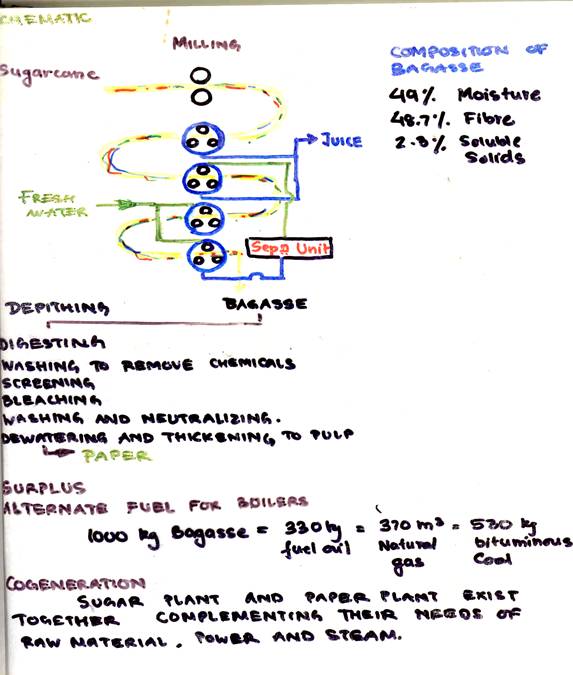 SCHEMATIC
MILLING
Sugarcane
COMPOSITION OF
BAGASSE
49% Moisture
48.7% Fibre
2.3% Soluble
Solids
JUICE
FRESH
WATER
Sepn Unit
BAGASSE
DEPITHING
DIGESTING
WASHING TO REMOVE CHEMICALS
SCREENING
BLEACHING
WASHING AND NEUTRALIZING.
DEWATERING AND THICKENING TO PULP
PAPER
SURPLUS
ALTERNATE FUEL FOR BOILERS
1000 kg Bagasse = 330 kg = 370 m³ = 530 kg
fuel oil Natural bituminous
gas Coal
COGENERATION
SUGAR PLANT AND PAPER PLANT EXIST
TOGETHER COMPLEMENTING THEIR NEEDS OF
RAW MATERIAL, POWER AND STEAM.